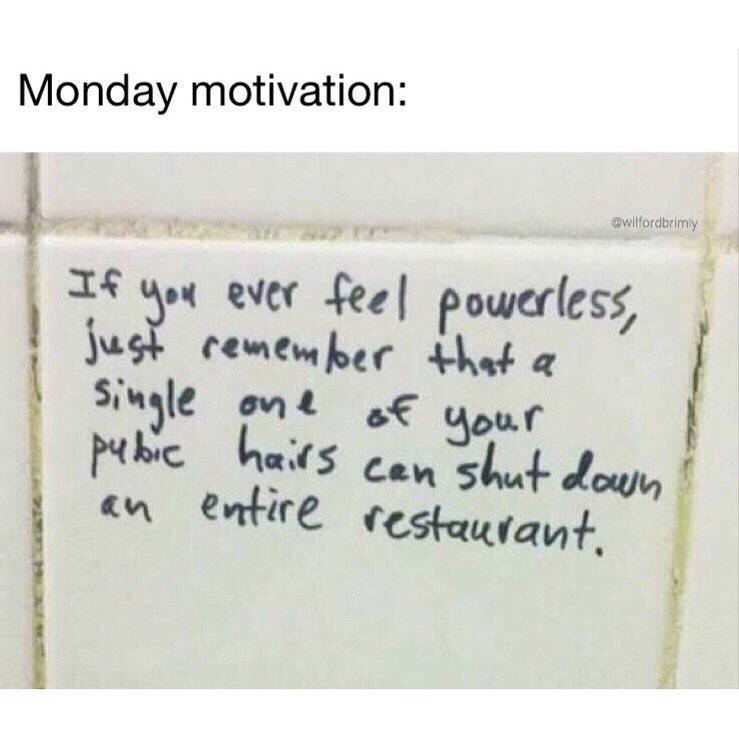 Monday motivation:
@wilfordbrimly
If you ever feel powerless,
just remember that a
single one of your
pubic hairs can shut down
an entire restaurant.